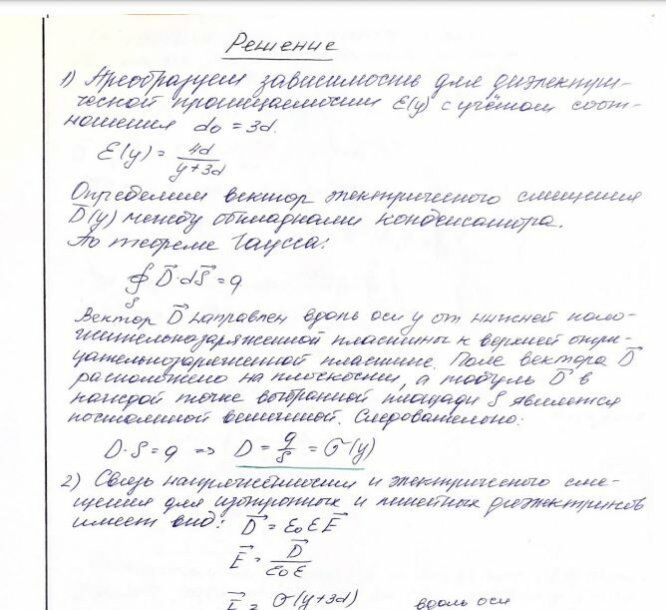 Решение
1) Преобразуем зависимость для диэлектри-
ческой проницаемости ε(y) с учётом соот-
ношения d₀ = 3d.
ε(y) = 4d / (y+3d)
Определим вектор электрического смещения
D⃗(y) между обкладками конденсатора.
По теореме Гаусса:
∮_S D⃗·dS⃗ = q
Вектор D⃗ направлен вдоль оси y от нижней поло-
жительнозаряженной пластины к верхней отри-
цательнозаряженной пластине. Поле вектора D⃗
расположено на плоскости, а модуль D⃗ в
каждой точке выбранной площади S является
постоянной величиной. Следовательно:
D·S = q => D = q/S = σ(y)
2) Связь напряжённости и электрического сме-
щения для изотропных и линейных диэлектриков
имеет вид: D⃗ = ε₀εE⃗
E⃗ = D⃗ / (ε₀ε)
E⃗ = σ(y+3d) вдоль оси